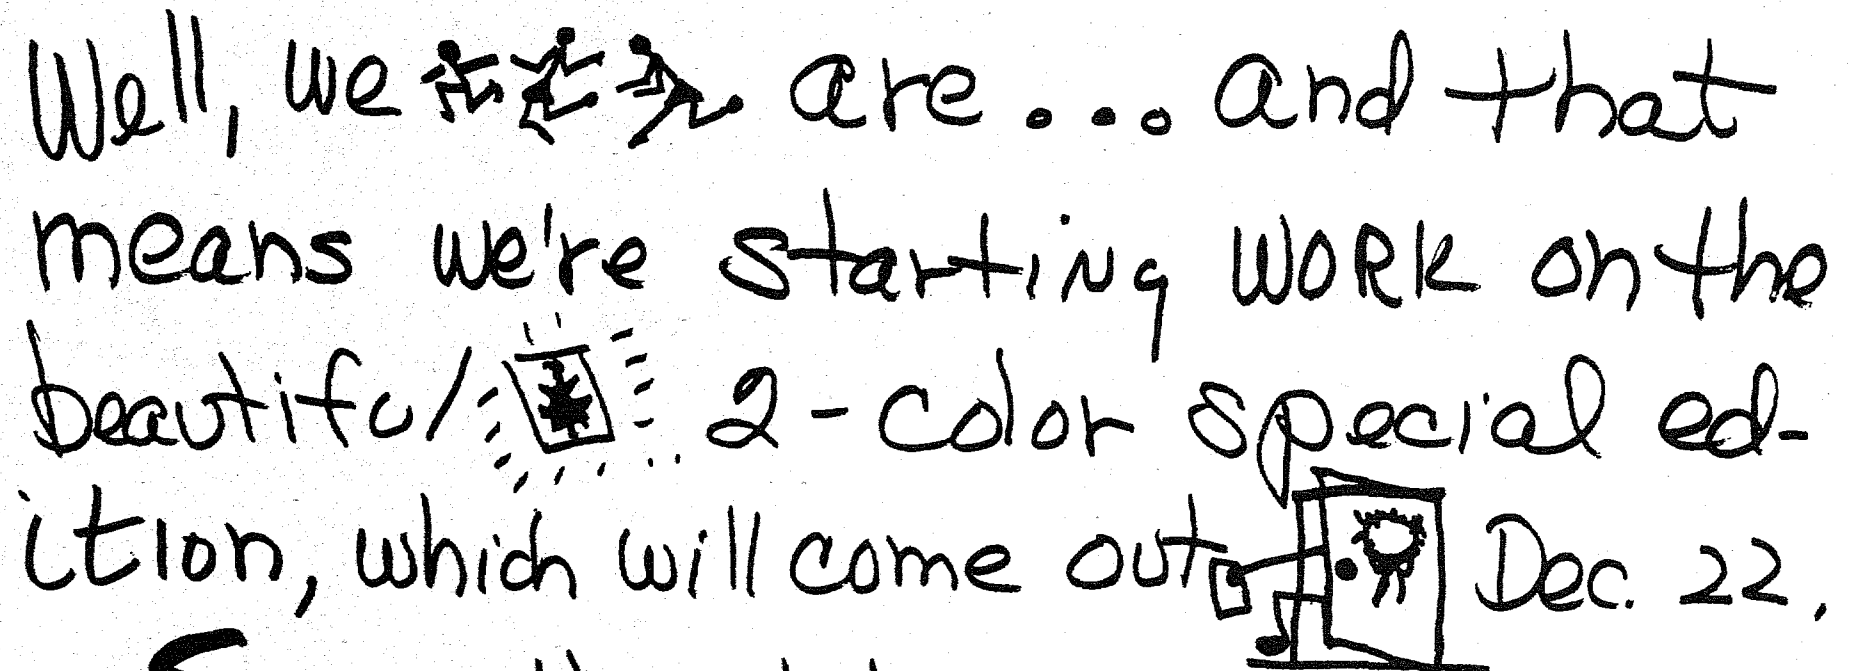 Well, we are... and that
means we're starting WORK on the
beautiful 2-color special ed-
ition, which will come out Dec. 22.